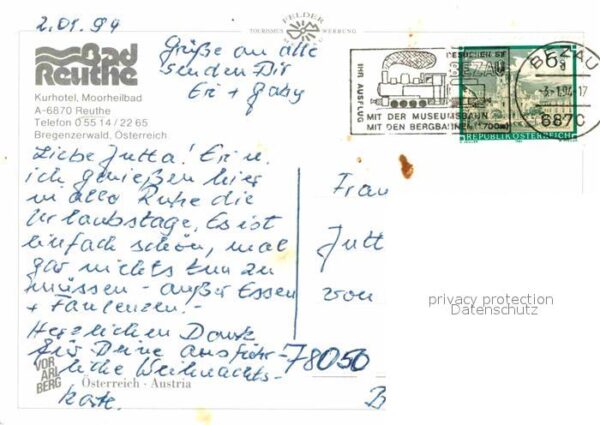 2.01.94
FELDER
TOURISMUS WERBUNG
Grüße an alle
senden Dir
Eri + Gaby
Bad
Reuthe
Kurhotel, Moorheilbad
A-6870 Reuthe
Telefon 0 55 14 / 22 65
Bregenzerwald, Österreich
BESUCHEN SIE
BEZAU
IHR AUSFLUG
MIT DER MUSEUMSBAHN
MIT DEN BERGBAHNEN (1700m)
BEZAU
-3-1.94-17
6870
REPUBLIK ÖSTERREICH
Liebe Jutta! Eri u.
ich genießen hier
in aller Ruhe die
Urlaubstage. Es ist
einfach schön, mal
gar nichts tun zu
müssen - außer Essen
+ Faulenzen.-
Herzlichen Dank
für Deine ausführ-
liche Weihnachts-
karte.
Frau
Jutt
von
78050
B
privacy protection
Datenschutz
VOR
ARL
BERG
Österreich - Austria